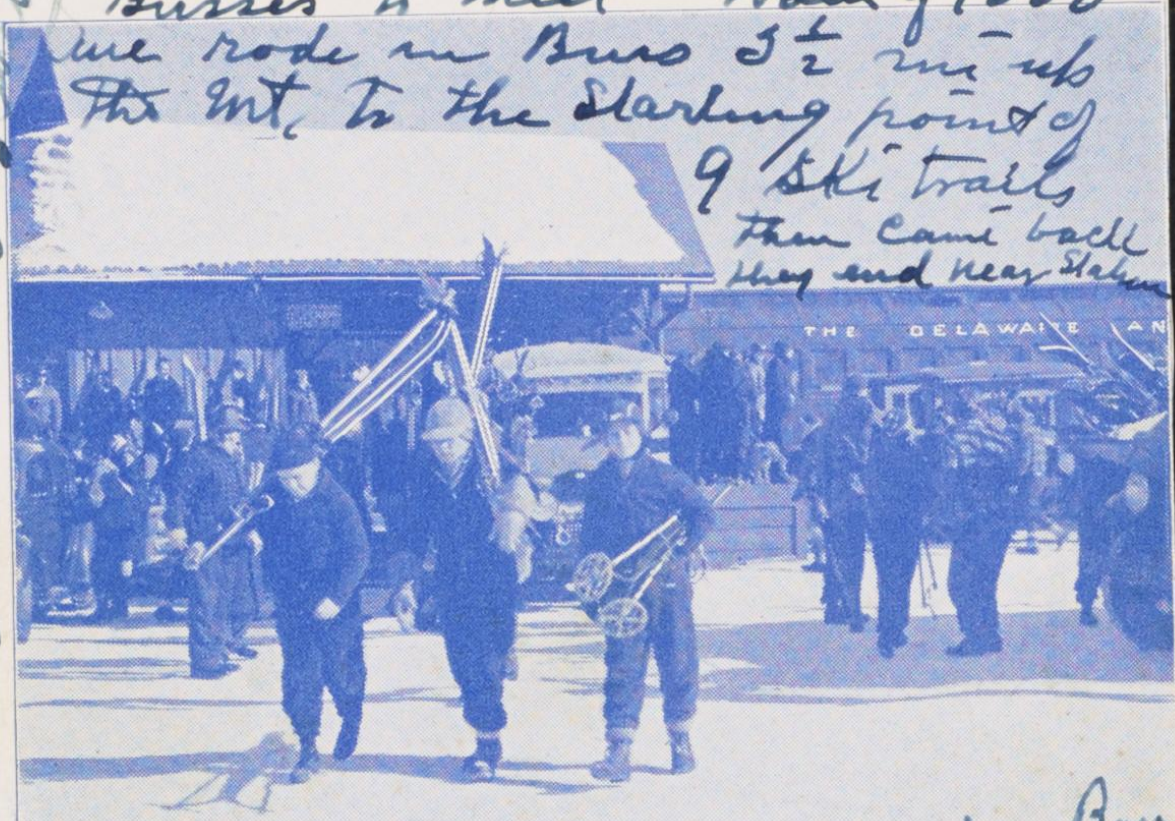 Busses to meet
we rode in Buss 3½ mi up
the Mt, to the Starting point of
9 Ski trails
then Came back
they end near Station
THE DELAWARE AN